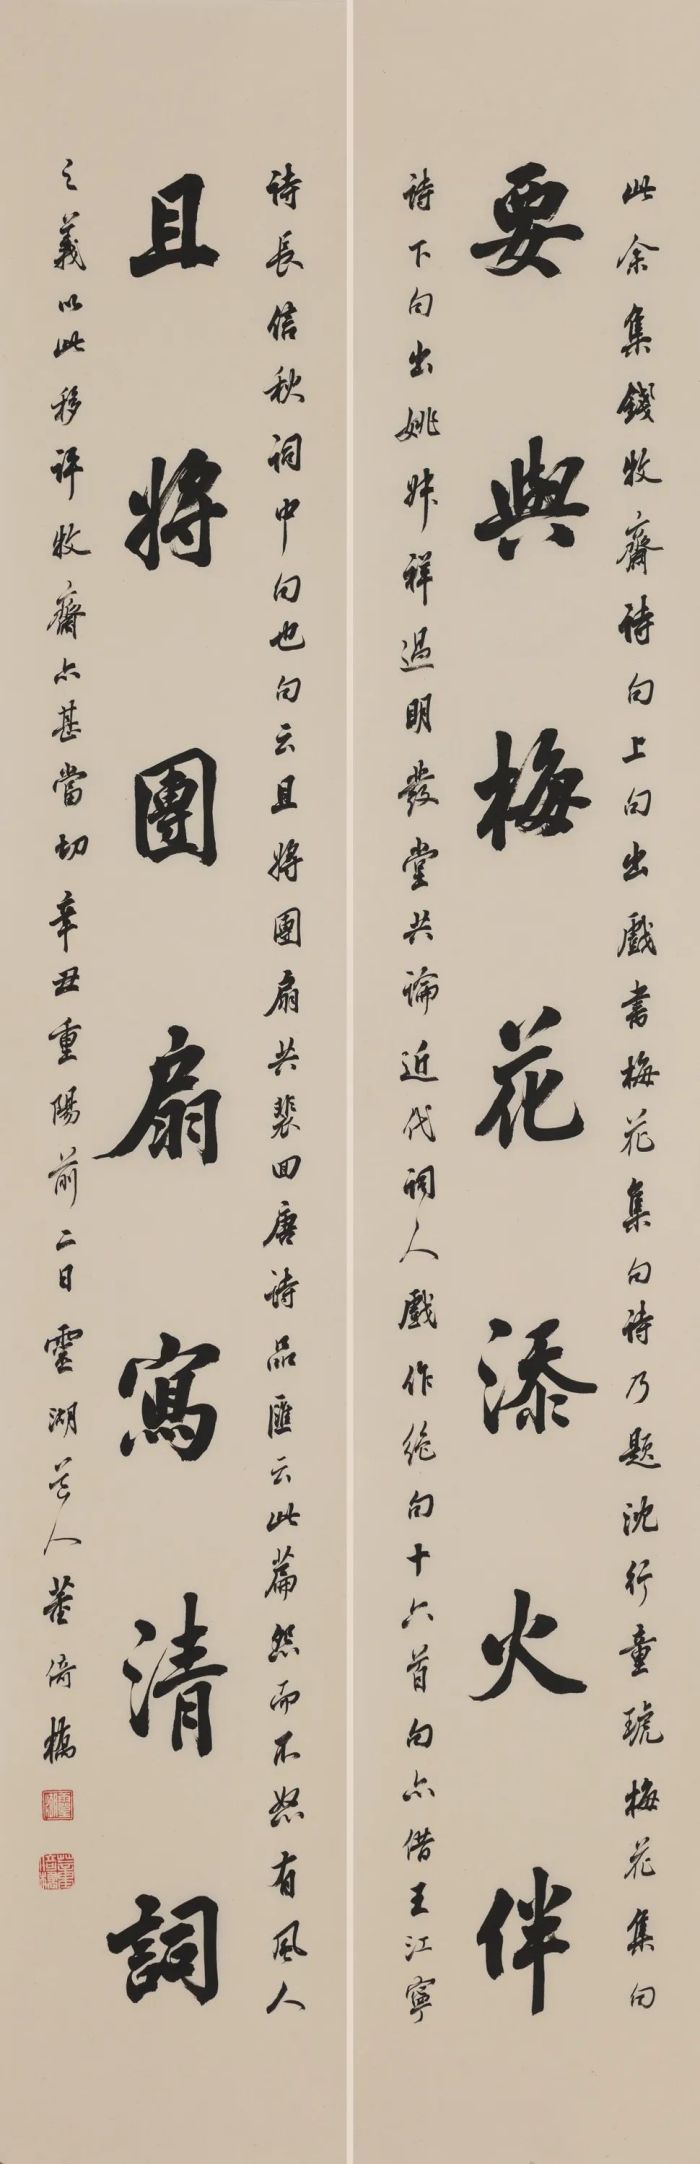 此余集錢牧齋詩句上句出戲書梅花集句詩乃題沈行童琥梅花集句
要與梅花添火伴
詩下句出姚叔祥過明發堂共論近代詞人戲作絶句十六首句亦借王江寧
詩長信秋詞中句也句云且將團扇共裴回唐詩品匯云此篇怨而不怒有風人
且將團扇寫清詞
之義以此移評牧齋亦甚當切辛丑重陽前二日靈湖芒人董倚橋